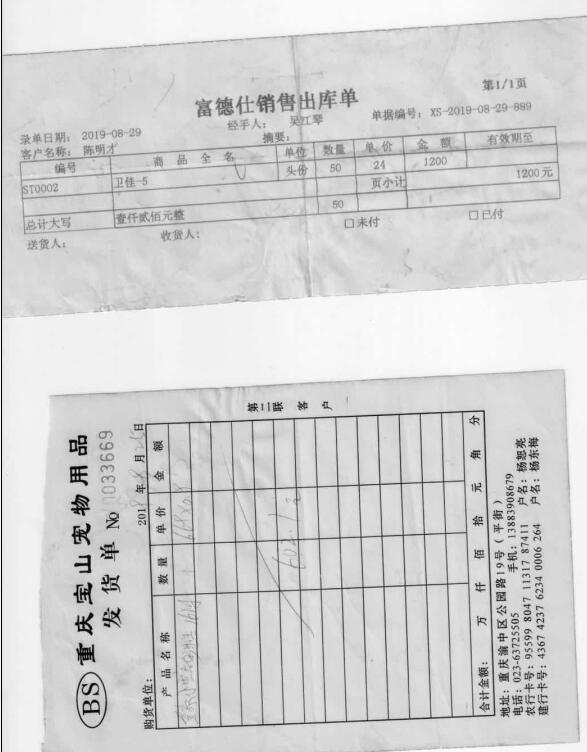 富德仕销售出库单
第1/1页
经手人: 吴江琴
单据编号: XS-2019-08-29-889
录单日期: 2019-08-29
摘要:
客户名称: 陈明才
编号 商品全名 单位 数量 单价 金额 有效期至
ST0002 卫佳-5 头份 50 24 1200
页小计 1200元
50
总计大写 壹仟贰佰元整 □未付 □已付
送货人: 收货人:
BS 重庆宝山宠物用品
发货单 No 0033669
购货单位: 201 年8月 日
第二联 客户
产品名称 数量 单价 金额
合计金额: 万 仟 佰 拾 元 角 分
地址: 重庆渝中区公园路19号(平街)
电话: 023-63725505 手机: 13883908679
农行卡号: 95599 8047 11317 87411 户名: 杨恕亮
建行卡号: 4367 4237 6234 0006 264 户名: 杨东梅